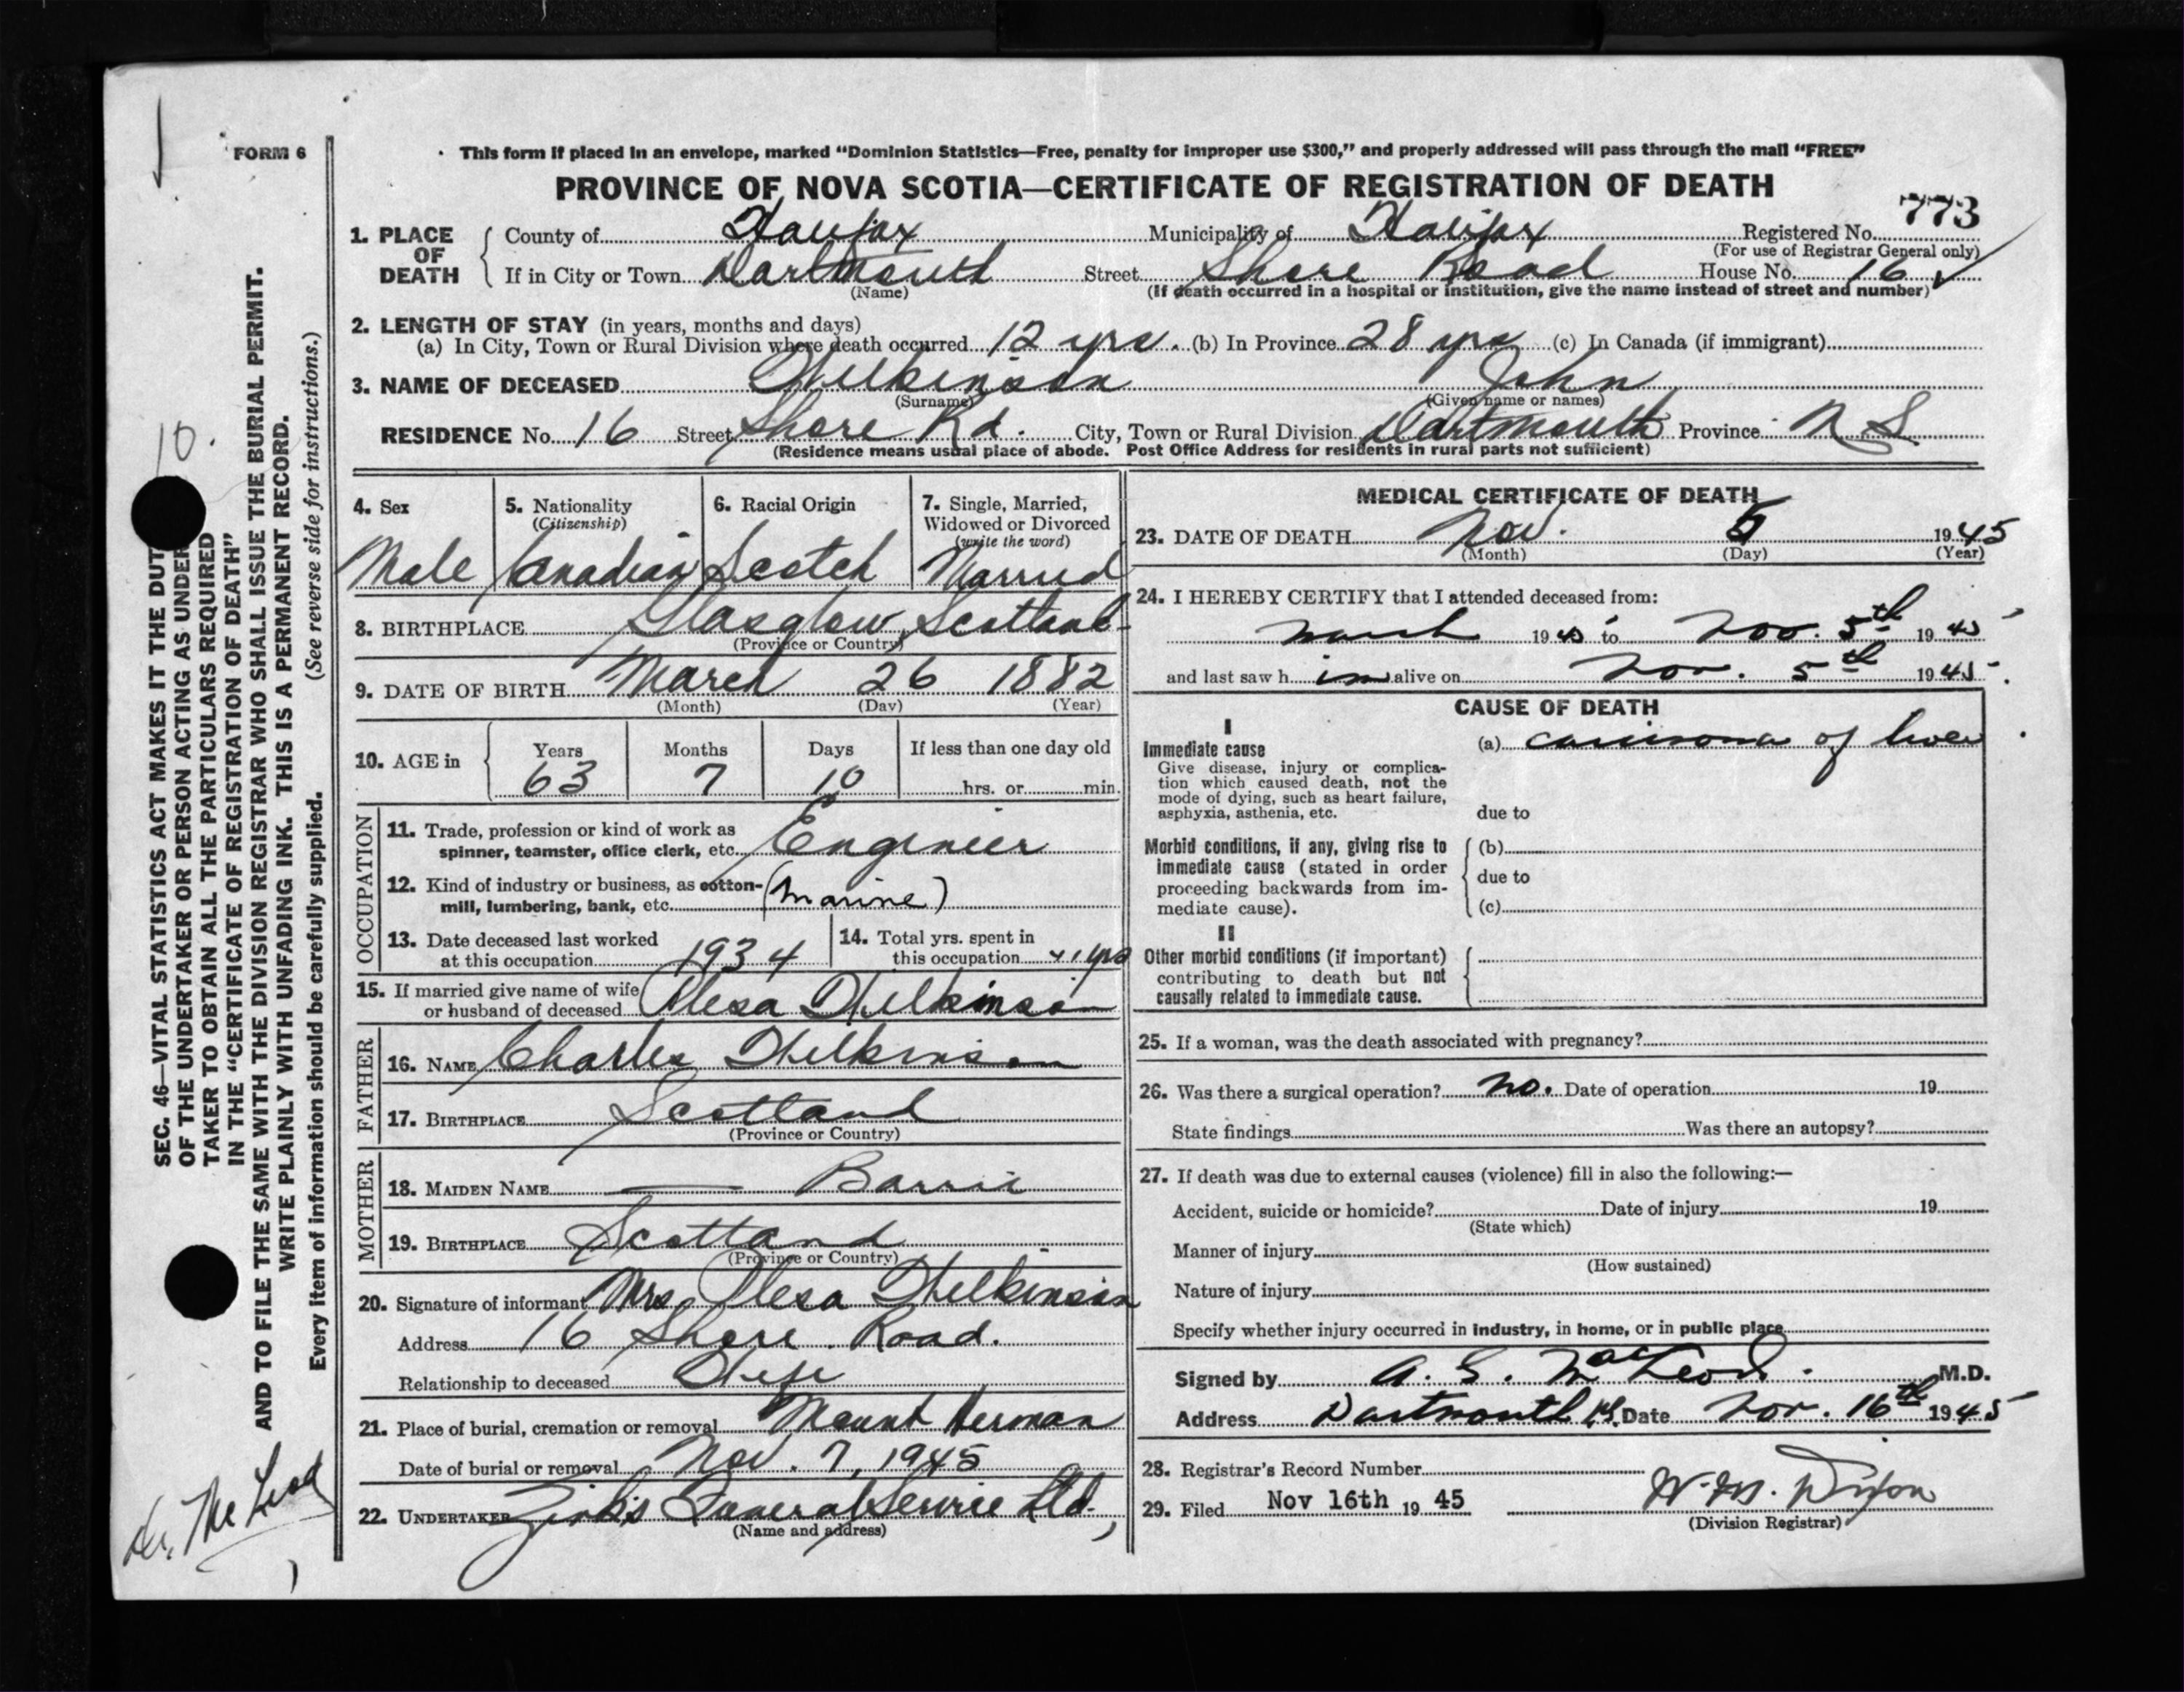 FORM 6
This form if placed in an envelope, marked “Dominion Statistics—Free, penalty for improper use $300,” and properly addressed will pass through the mail “FREE”
PROVINCE OF NOVA SCOTIA—CERTIFICATE OF REGISTRATION OF DEATH
773
1. PLACE OF DEATH County of Halifax Municipality of Halifax Registered No.
(For use of Registrar General only)
If in City or Town Dartmouth Street Shore Road House No. 16
(Name) (If death occurred in a hospital or institution, give the name instead of street and number)
2. LENGTH OF STAY (in years, months and days)
(a) In City, Town or Rural Division where death occurred 12 yrs. (b) In Province 28 yrs (c) In Canada (if immigrant)
3. NAME OF DECEASED Wilkinson John
(Surname) (Given name or names)
RESIDENCE No. 16 Street Shore Rd. City, Town or Rural Division Dartmouth Province N S
(Residence means usual place of abode. Post Office Address for residents in rural parts not sufficient)
4. Sex Male
5. Nationality (Citizenship) Canadian
6. Racial Origin Scotch
7. Single, Married, Widowed or Divorced (write the word) Married
8. BIRTHPLACE Glasglow, Scotland
(Province or Country)
9. DATE OF BIRTH March 26 1882
(Month) (Day) (Year)
10. AGE in Years 63 Months 7 Days 10 If less than one day old hrs. or min.
OCCUPATION
11. Trade, profession or kind of work as
spinner, teamster, office clerk, etc. Engineer
12. Kind of industry or business, as cotton-
mill, lumbering, bank, etc. (marine)
13. Date deceased last worked
at this occupation 1934
14. Total yrs. spent in
this occupation yrs
15. If married give name of wife
or husband of deceased Wilkinson
FATHER
16. NAME Charles Wilkinson
17. BIRTHPLACE Scotland
(Province or Country)
MOTHER
18. MAIDEN NAME — Barrie
19. BIRTHPLACE Scotland
(Province or Country)
20. Signature of informant Mrs Wilkinson
Address 16 Shore Road.
Relationship to deceased Wife
21. Place of burial, cremation or removal Mount Herman
Date of burial or removal Nov. 7, 1945
22. UNDERTAKER Zink's Funeral Service Ltd.,
(Name and address)
MEDICAL CERTIFICATE OF DEATH
23. DATE OF DEATH Nov. 5 1945
(Month) (Day) (Year)
24. I HEREBY CERTIFY that I attended deceased from:
March 1945 to Nov. 5th 1945
and last saw him alive on Nov. 5th 1945.
CAUSE OF DEATH
I
Immediate cause (a) carcinoma of liver
Give disease, injury or complica-
tion which caused death, not the
mode of dying, such as heart failure,
asphyxia, asthenia, etc. due to
Morbid conditions, if any, giving rise to (b)
immediate cause (stated in order
proceeding backwards from im- due to
mediate cause). (c)
II
Other morbid conditions (if important)
contributing to death but not
causally related to immediate cause.
25. If a woman, was the death associated with pregnancy?
26. Was there a surgical operation? no. Date of operation 19
State findings Was there an autopsy?
27. If death was due to external causes (violence) fill in also the following:—
Accident, suicide or homicide? Date of injury 19
(State which)
Manner of injury
(How sustained)
Nature of injury
Specify whether injury occurred in industry, in home, or in public place
Signed by A. S. MacLeod. M.D.
Address Dartmouth N.S. Date Nov. 16th 1945
28. Registrar's Record Number
29. Filed Nov 16th 1945 W. M. Dixon
(Division Registrar)
10.
SEC. 46—VITAL STATISTICS ACT MAKES IT THE DUT
OF THE UNDERTAKER OR PERSON ACTING AS UNDER
TAKER TO OBTAIN ALL THE PARTICULARS REQUIRED
IN THE “CERTIFICATE OF REGISTRATION OF DEATH”
AND TO FILE THE SAME WITH THE DIVISION REGISTRAR WHO SHALL ISSUE THE BURIAL PERMIT.
WRITE PLAINLY WITH UNFADING INK. THIS IS A PERMANENT RECORD.
Every item of information should be carefully supplied. (See reverse side for instructions.)
Dr. McLeod